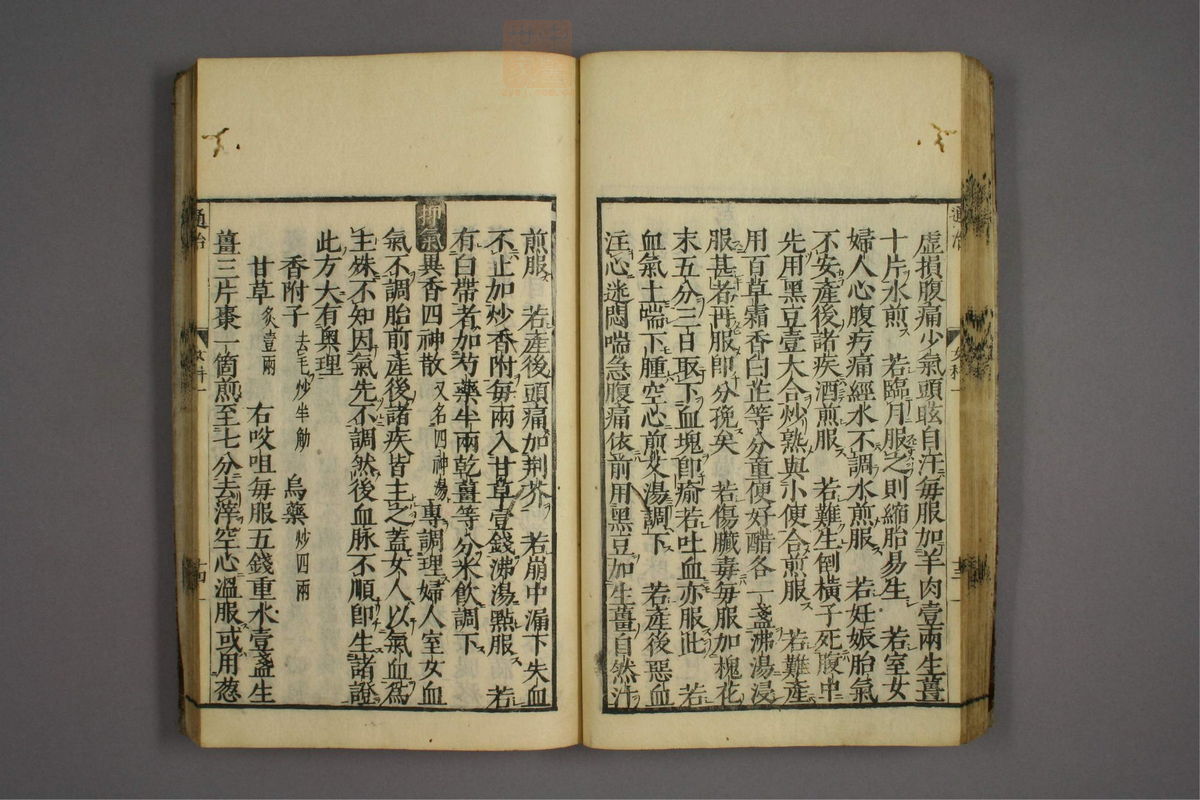 虛損腹痛少氣頭眩自汗每服加羊肉壹兩生薑
十片水煎　若臨月服之則縮胎易生　若室女
婦人心腹疞痛經水不調水煎服　若妊娠胎氣
不安產後諸疾酒煎服　若難生倒橫子死腹中
先用黑豆壹大合炒熟與小便合煎服　若難產
用百草霜香白芷等分童便好醋各一盞沸湯浸
服甚者再服即分娩矣　若傷臟毒每服加槐花
末五分三日取下血塊即瘉若吐血亦服此　若
血氣上喘下腫空心煎艾湯調下　若產後惡血
注心迷悶喘急腹痛依前用黑豆加生薑自然汁
通治
女科一
十三
煎服　若產後頭痛加荆芥　若崩中漏下失血
不止加炒香附每兩入甘草壹錢沸湯點服　若
有白帶者加芍藥半兩乾薑等分米飲調下
抑氣異香四神散又名四神湯專調理婦人室女血
氣不調胎前產後諸疾皆主之蓋女人以氣血爲
生殊不知因氣先不調然後血脉不順即生諸證
此方大有奧理
香附子去毛炒半觔　烏藥炒四兩
甘草炙壹兩　右㕮咀每服五錢重水壹盞生
薑三片棗一箇煎至七分去滓空心溫服或用葱
通治
女科一
十四